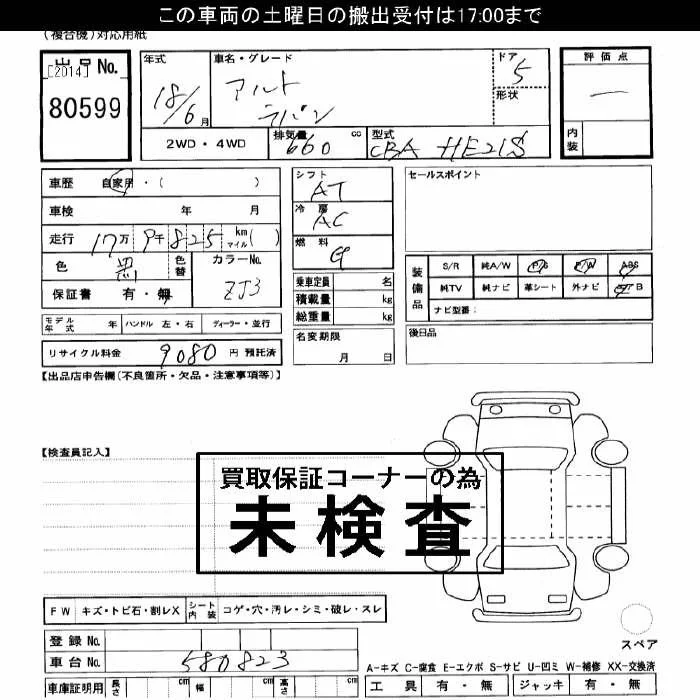 この車両の土曜日の搬出受付は17:00まで
(複合機)対応用紙
出品 No.
[2014]
80599
年式
18/6月
車名・グレード
アルト
ラパン
ドア
5
形状
評価点
内装
2WD・4WD
排気量 660 cc
型式 CBA HE21S
車歴 自家用・( )
車検 年 月
走行 17万9千825 km マイル( )
色 黒 色替
カラーNo.
ZJ3
保証書 有・無
シフト
AT
冷房
AC
燃料
G
乗車定員 名
積載量 kg
総重量 kg
セールスポイント
装備品
S/R 純A/W P/S P/W ABS
純TV 純ナビ 革シート 外ナビ B
ナビ型番:
モデル年式 年 ハンドル 左・右 ディーラー・並行
名変期限
月 日
後日品
リサイクル料金 9080 円 預託済
【出品店申告欄(不良箇所・欠品・注意事項等)】
【検査員記入】
買取保証コーナーの為
未検査
FW キズ・トビ石・割レX シート内装 コゲ・穴・汚レ・シミ・破レ・スレ
スペア
登録 No.
車台 No. 580823
車庫証明用 長さ cm 幅 cm 高さ cm
A-キズ C-腐食 E-エクボ S-サビ U-凹ミ W-補修 XX-交換済
工具 有・無 ジャッキ 有・無